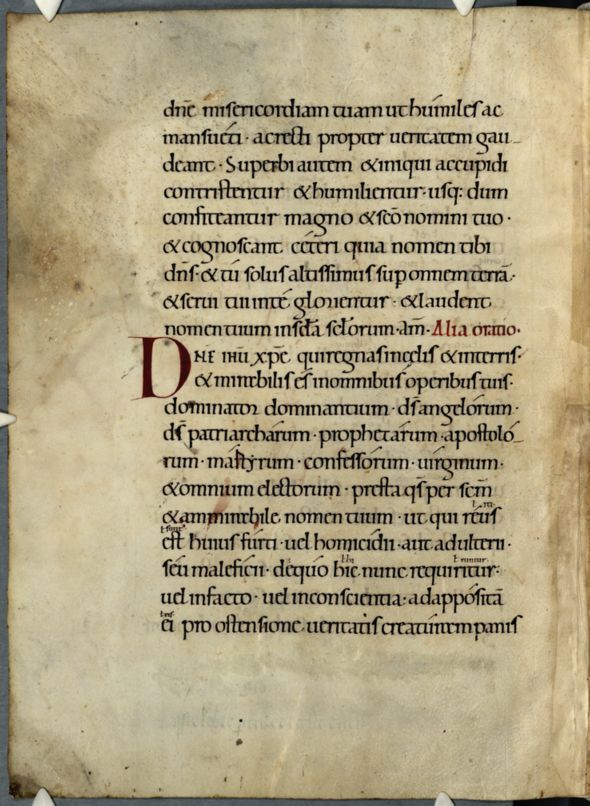 dn̄e misericordiam tuam ut humiles ac
mansueti · ac recti propter ueritatem gau-
deant · Superbi autem & iniqui ac cupidi
contristentur & humilientur · usq: dum
confiteantur magno & sc̄o nomini tuo ·
& cognoscant cęteri quia nomen tibi
dn̄s · & tú solus altissimus sup omnem terrā ·
& serui tui in té glorientur · & laudent
nomen tuum in sc̄la sclorum · am̄ · Alia oratio ·
DNE ihū xpē qui regnas in cęlis & in terris ·
& mirabilis és in omnibus operibus tuis ·
dominator dominantium · ds̄ angelorum ·
ds̄ patriarcharum · prophetarum · apostolo-
rum · martyrum · confessorum · uirginum ·
& omnium electorum · presta qs̄ per sc̄m
& ammirabile nomen tuum · ut qui reus
est huius furti · uel homicidii · aut adulterii ·
seu maleficii · de quo hic nunc requiritur ·
uel in facto · uel in conscientia · ad appositā
ei pro ostensione ueritatis creaturem panis